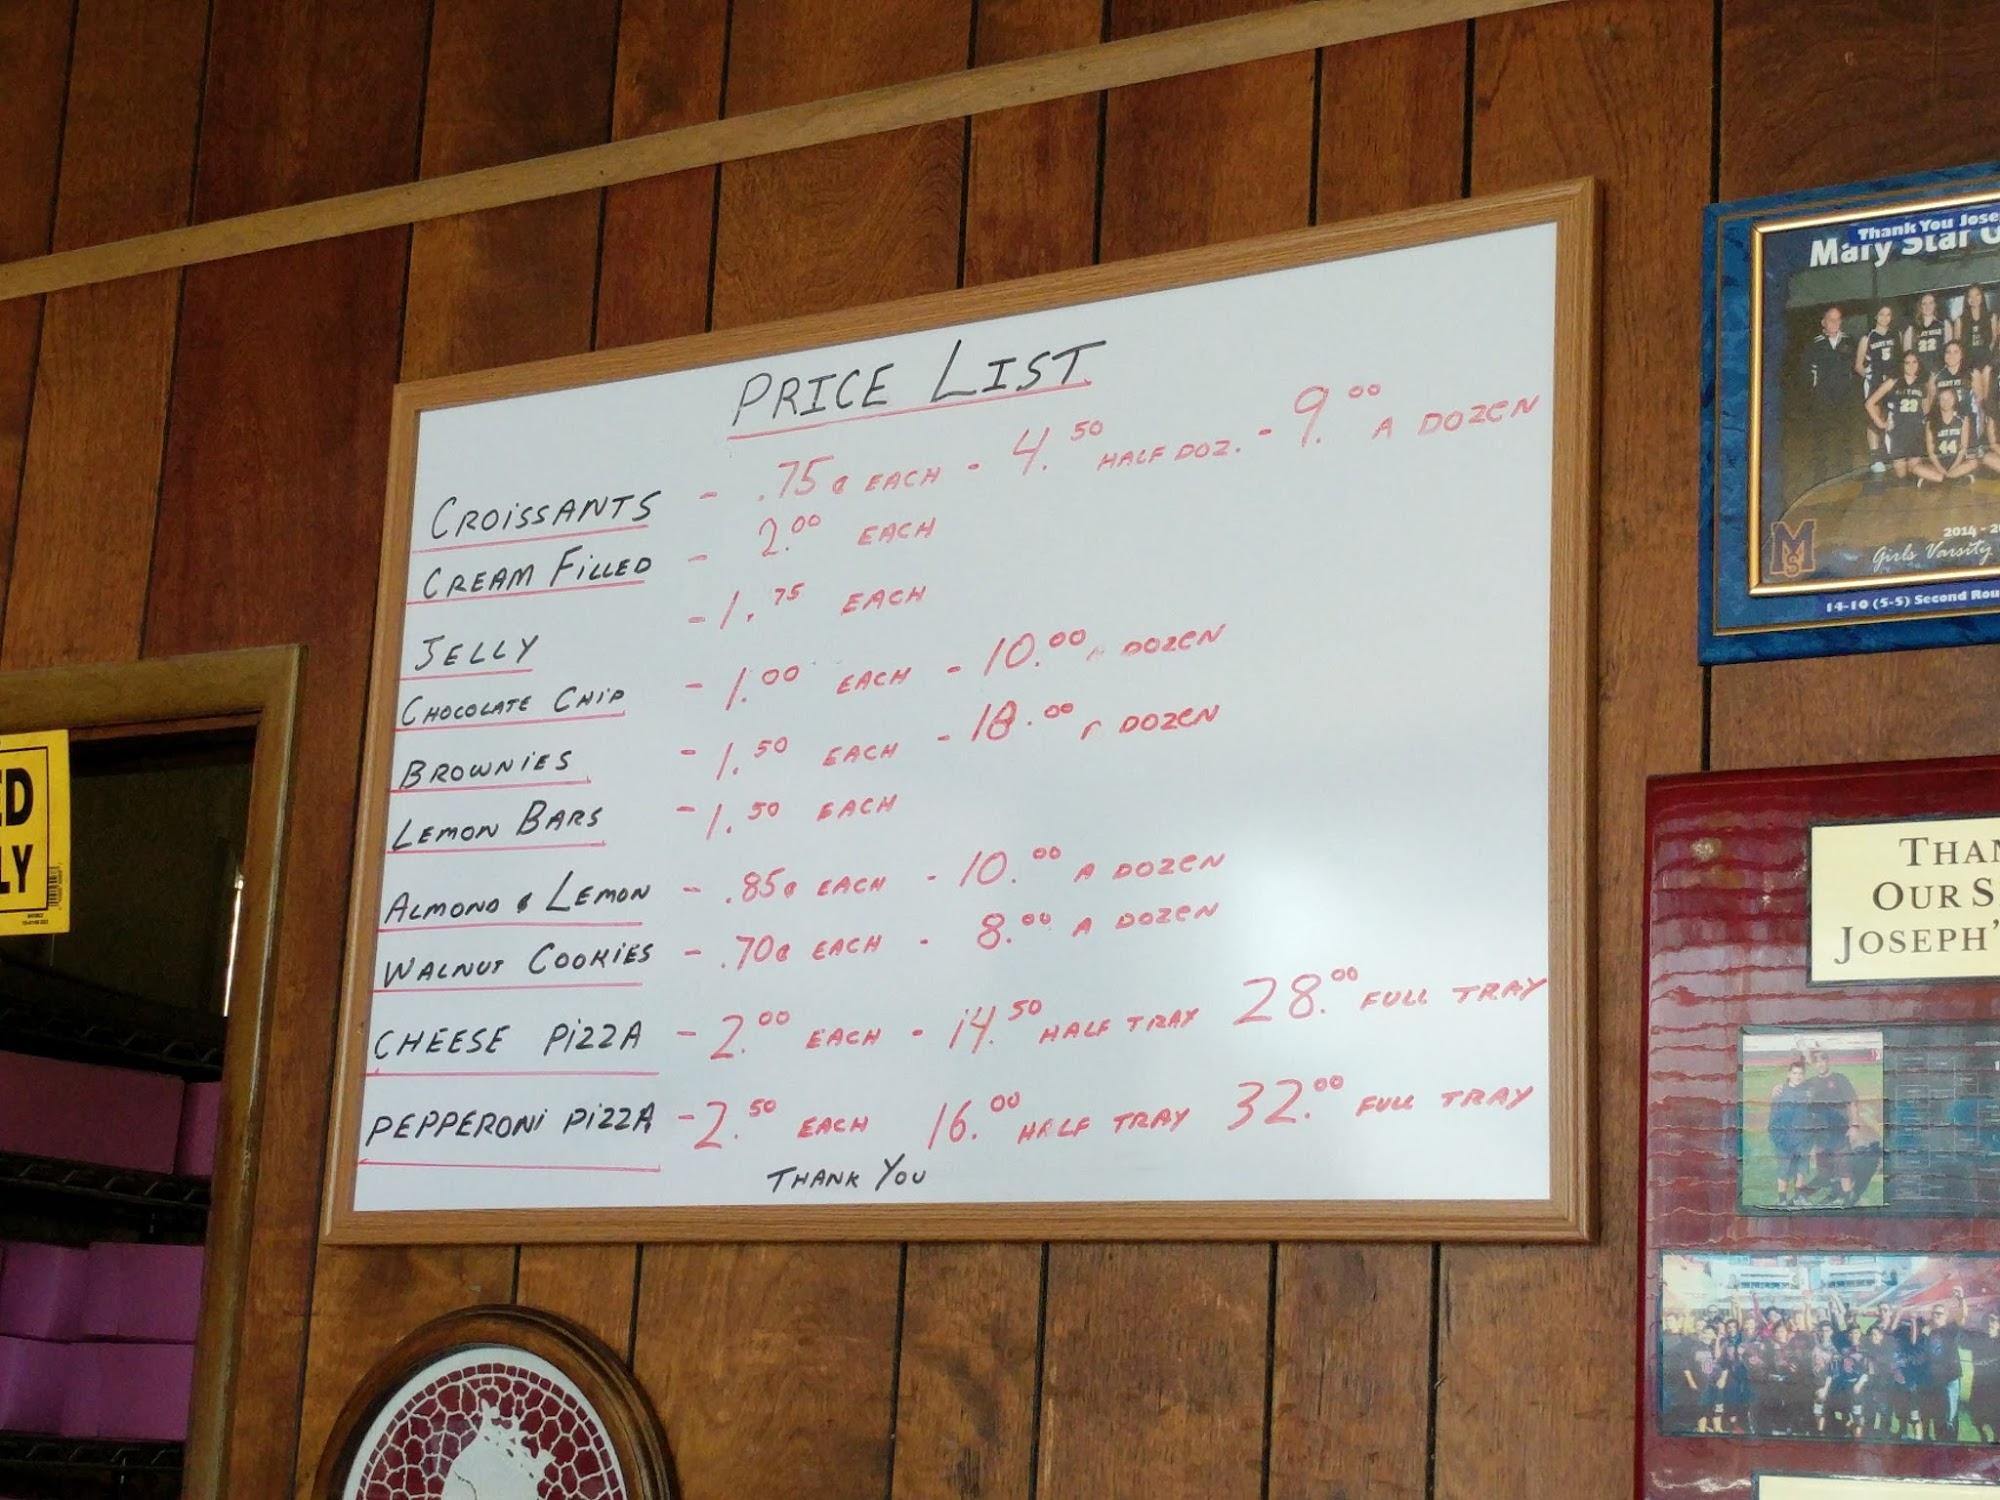 PRICE LIST
CROISSANTS - .75¢ EACH - 4.50 HALF DOZ. - 9.00 A DOZEN
CREAM FILLED - 2.00 EACH
JELLY - 1.75 EACH
CHOCOLATE CHIP - 1.00 EACH - 10.00 A DOZEN
BROWNIES - 1.50 EACH - 18.00 A DOZEN
LEMON BARS - 1.50 EACH
ALMOND & LEMON - .85¢ EACH - 10.00 A DOZEN
WALNUT COOKIES - .70¢ EACH - 8.00 A DOZEN
CHEESE PIZZA - 2.00 EACH - 14.50 HALF TRAY 28.00 FULL TRAY
PEPPERONI PIZZA - 2.50 EACH 16.00 HALF TRAY 32.00 FULL TRAY
THANK YOU
Thank You Jose
Mary Star O
5
22
23
44
MS
2014 - 2
Girls Varsity
14-10 (5-5) Second Rou
ED
LY
THAN
OUR S
JOSEPH'